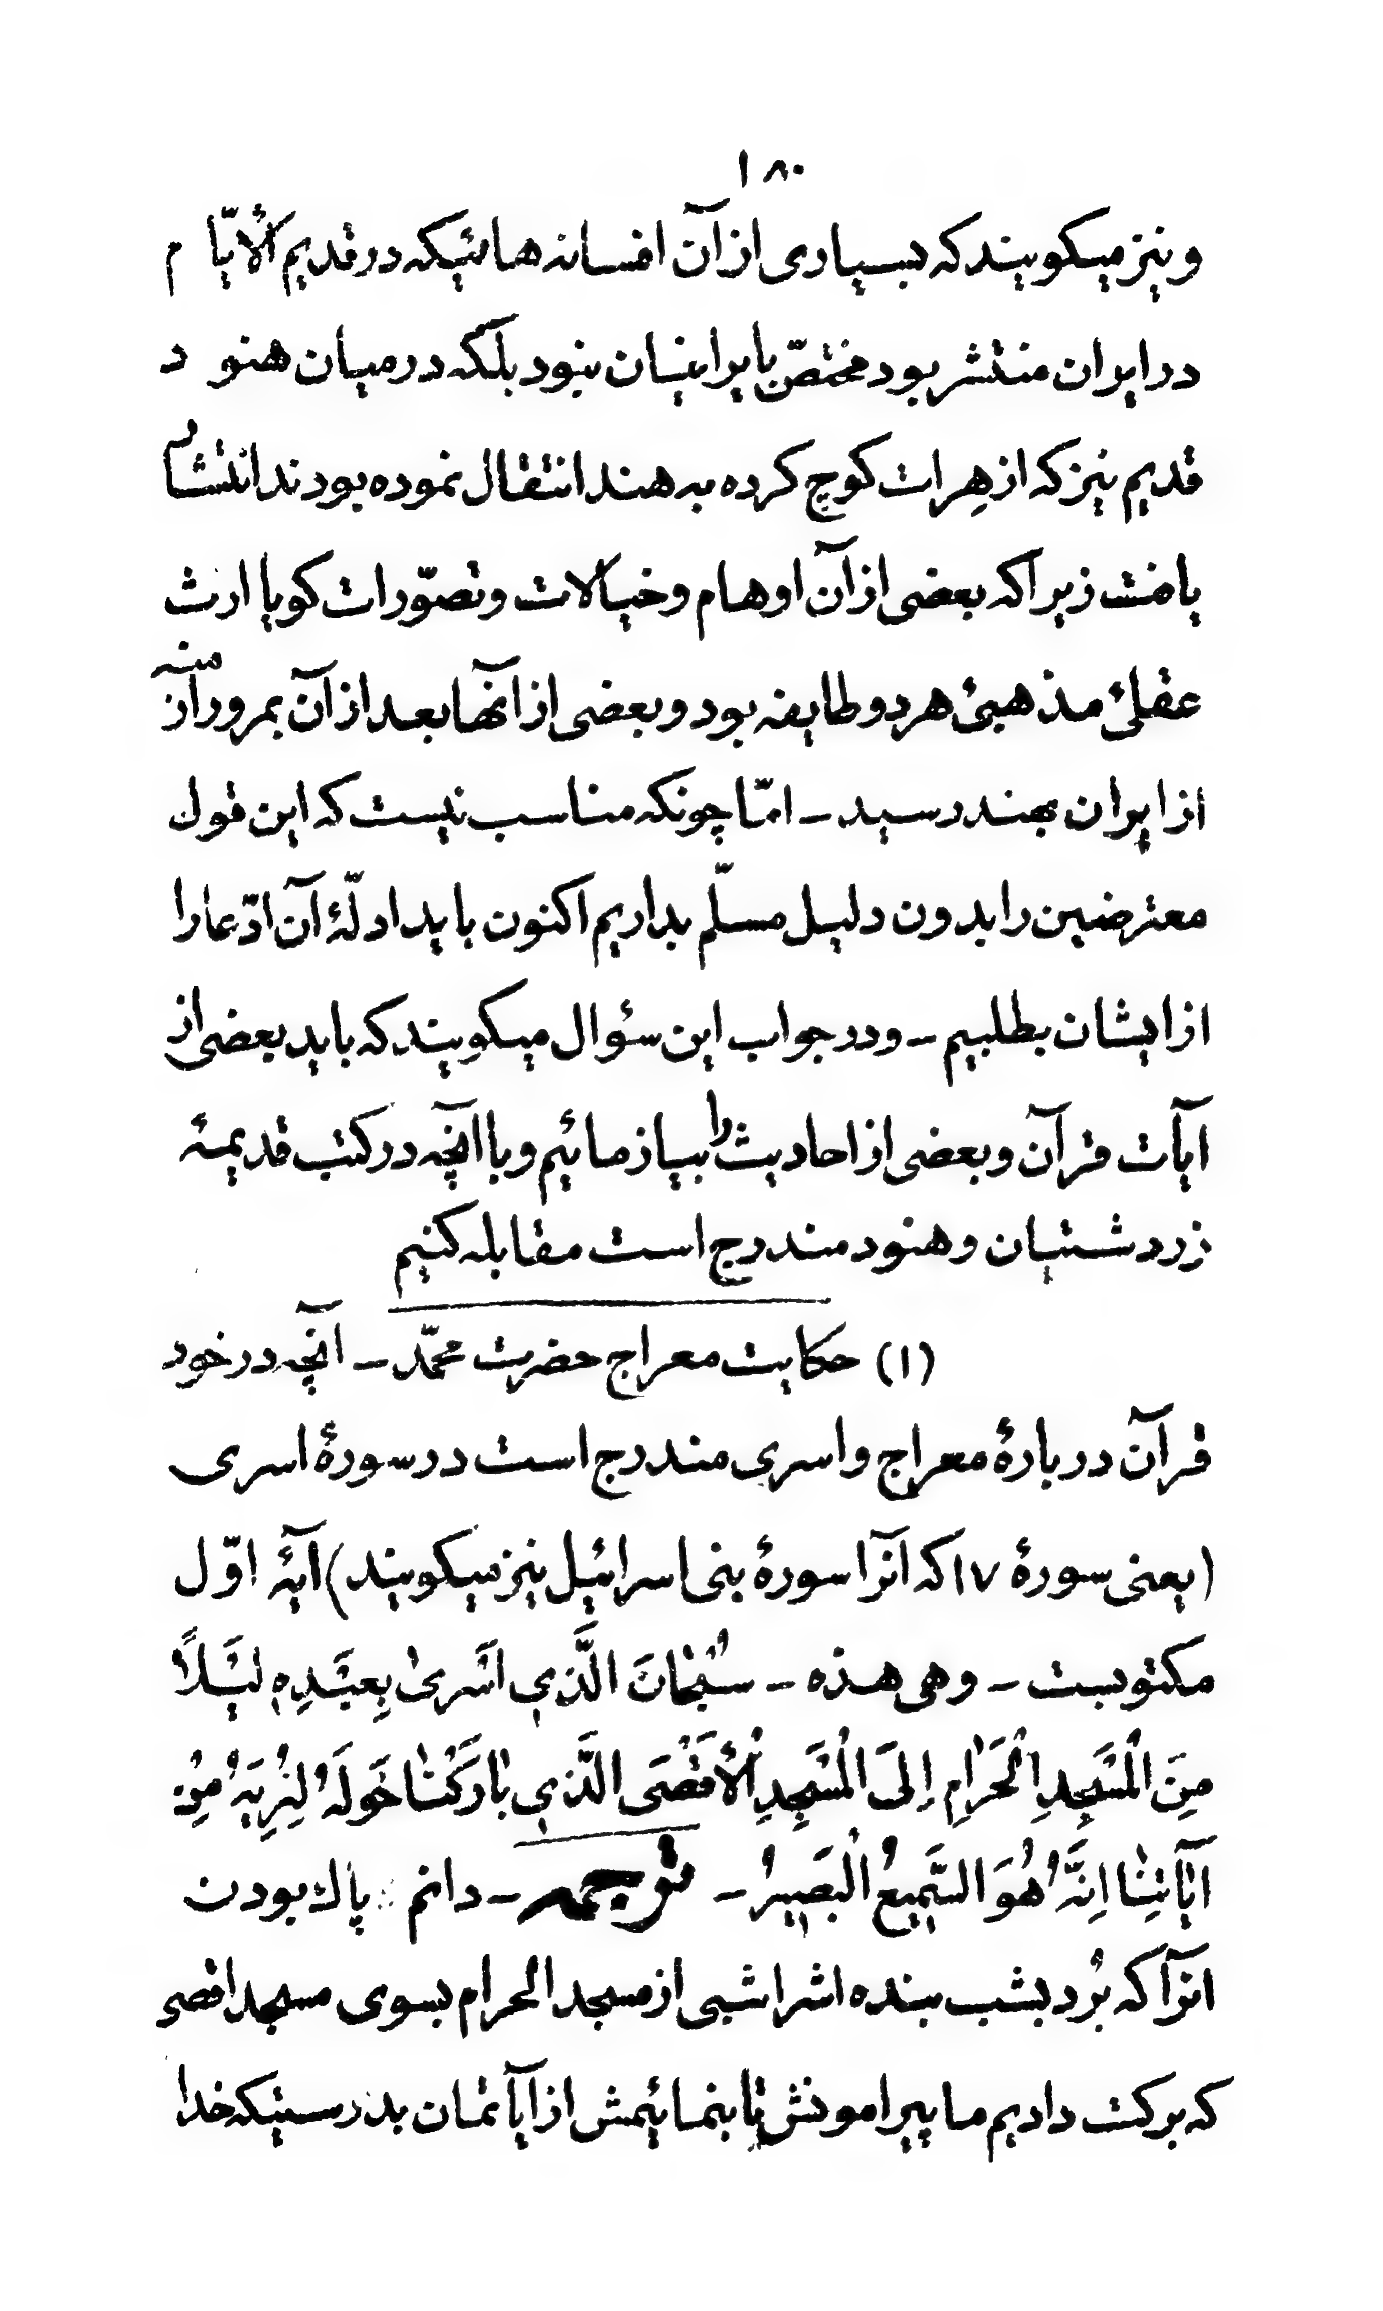 ۱۸۰
و نیز میکویند که بسیاری از آن افسانه هائیکه در قدیم الأیّام
در ایران منتشر بود مختصّ بایرانیان نبود بلکه در میان هنود
قدیم نیز که از هِرات کوچ کرده به هند انتقال نموده بودند انتشار
یافت زیرا که بعضی از آن اوهام و خیالات و تصوّرات کویا ارث
عقلئ مذهبئ هر دو طایفه بود و بعضی از آنها بعد از آن بمرور ازمنه
از ایران بهند رسید – امّا چونکه مناسب نیست که این قول
معترضین را بدون دلیل مسلّم بداریم اکنون باید ادلّهٔ آن ادّعا را
از ایشان بطلبیم – و در جواب این سؤال میکویند که باید بعضی از
آیات قرآن و بعضی از احادیث را بیازمائیم و با آنچه در کتب قدیمهٔ
زردشتیان و هنود مندرج است مقابله کنیم
(۱) حکایت معراج حضرت محمّد – آنچه در خود
قرآن دربارهٔ معراج و اسری مندرج است در سورهٔ اسری
(یعنی سورهٔ ۱۷ که آنرا سورهٔ بنی اسرائیل نیز میکویند) آیهٔ اوّل
مکتوبست – وهی هذه – سُبْحَانَ الَّذِي اَسْرَىٰ بِعَبْدِهِ لَيْلاً
مِنَ الْمَسْجِدِ الْحَرَامِ اِلَى الْمَسْجِدِ الْأَقْصَى الَّذِي بَارَكْنَا حَوْلَهُ لِنُرِيَهُ مِنْ
آيَاتِنَا اِنَّهُ هُوَ السَّمِيعُ الْبَصِيرُ – ترجمه – دانم پاك بودن
آنرا که بُرد بشب بنده اش را شبی از مسجد الحرام بسوی مسجد اقصی
که برکت دادیم ما پیرامونش تا بنمائیمش از آیاتمان بدرستیکه خدا